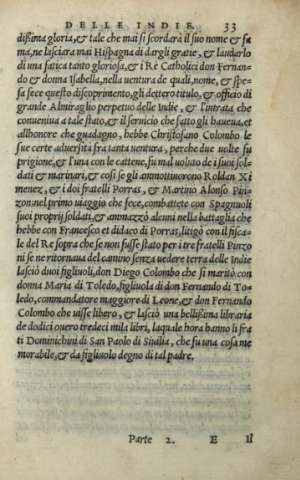 DELLE INDIE. 33
dißima gloria, & tale che mai si scordarà il suo nome & fa
ma, ne lasciara mai Hispagna di dargli gratie, & laudarlo
di una fatica tanto gloriosa, & i Re Catholici don Fernan-
do & donna Isabella, nella uentura de quali, nome, & spe
sa fece questo discoprimento, gli dettero titulo, & officio di
grande Almiraglio perpetuo delle Indie, & l'intrata che
conueniua a tale stato, & il seruicio che fatto gli haueua, et
all'honore che guadagno, hebbe Christofano Colombo le
sue certe aduersità fra tanta uentura, perche due uolte fu
prigione, & l'una con le cattene, fu mal uoluto de i suoi sol-
dati & marinari, & così se gli ammottinerono Roldan Xi
menez, & i doi fratelli Porras, & Martino Alonso Pin-
zon: nel primo uiaggio che fece, combattete con Spagnuoli
suoi proprij soldati, & ammazzò alcuni nella battaglia che
hebbe con Francesco et didaco di Porras, litigò con il fisca-
le del Re sopra che se non fusse stato per i tre fratelli Pinzo
ni se ne ritornaua del camino senza uedere terra delle Indie
lasciò duoi figliuoli, don Diego Colombo che si maritò con
donna Maria di Toledo, figliuola di don Fernando di To-
ledo, commandatore maggiore di Leone, & don Fernando
Colombo che uisse libero, & lasciò una bellißima libraria
de dodici ouero tredeci mila libri, laquale hora hanno li fra
ti Dominichini di San Paolo di Siuilia, che fu una cosa me
morabile, & da figliuolo degno di tal padre.
Parte 2. E Il